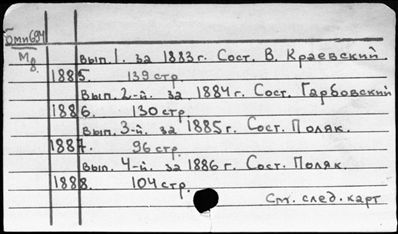 Оми694
М
в.
Вып. 1. за 1883 г. Сост. В. Краевский.
1885. 139 стр.
Вып. 2-й. за 1884 г. Сост. Гарбовский
1886. 130 стр.
Вып. 3-й. за 1885 г. Сост. Поляк.
1887. 96 стр.
Вып. 4-й. за 1886 г. Сост. Поляк.
1888. 104 стр.
См. след. карт